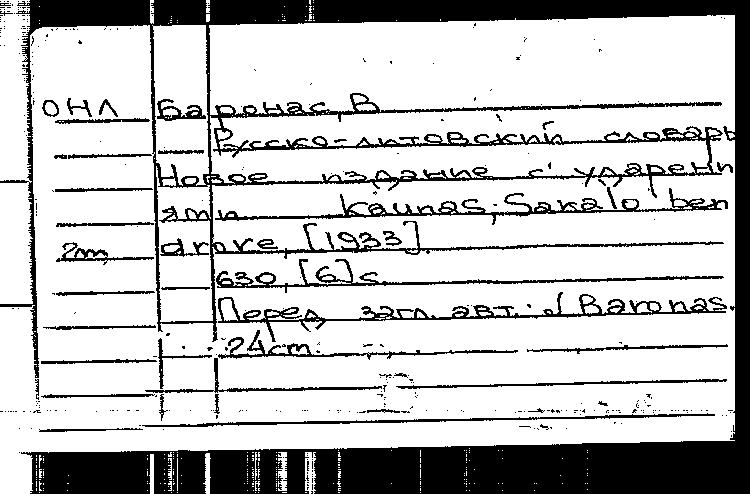 ОНЛ Баронас, В
Русско-литовский словарь
Новое издание с ударени
ями Kaunas, Sakalo ben
drove, [1933].
630, [6] с.
Перед загл. авт.: J Baronas.
24cm.